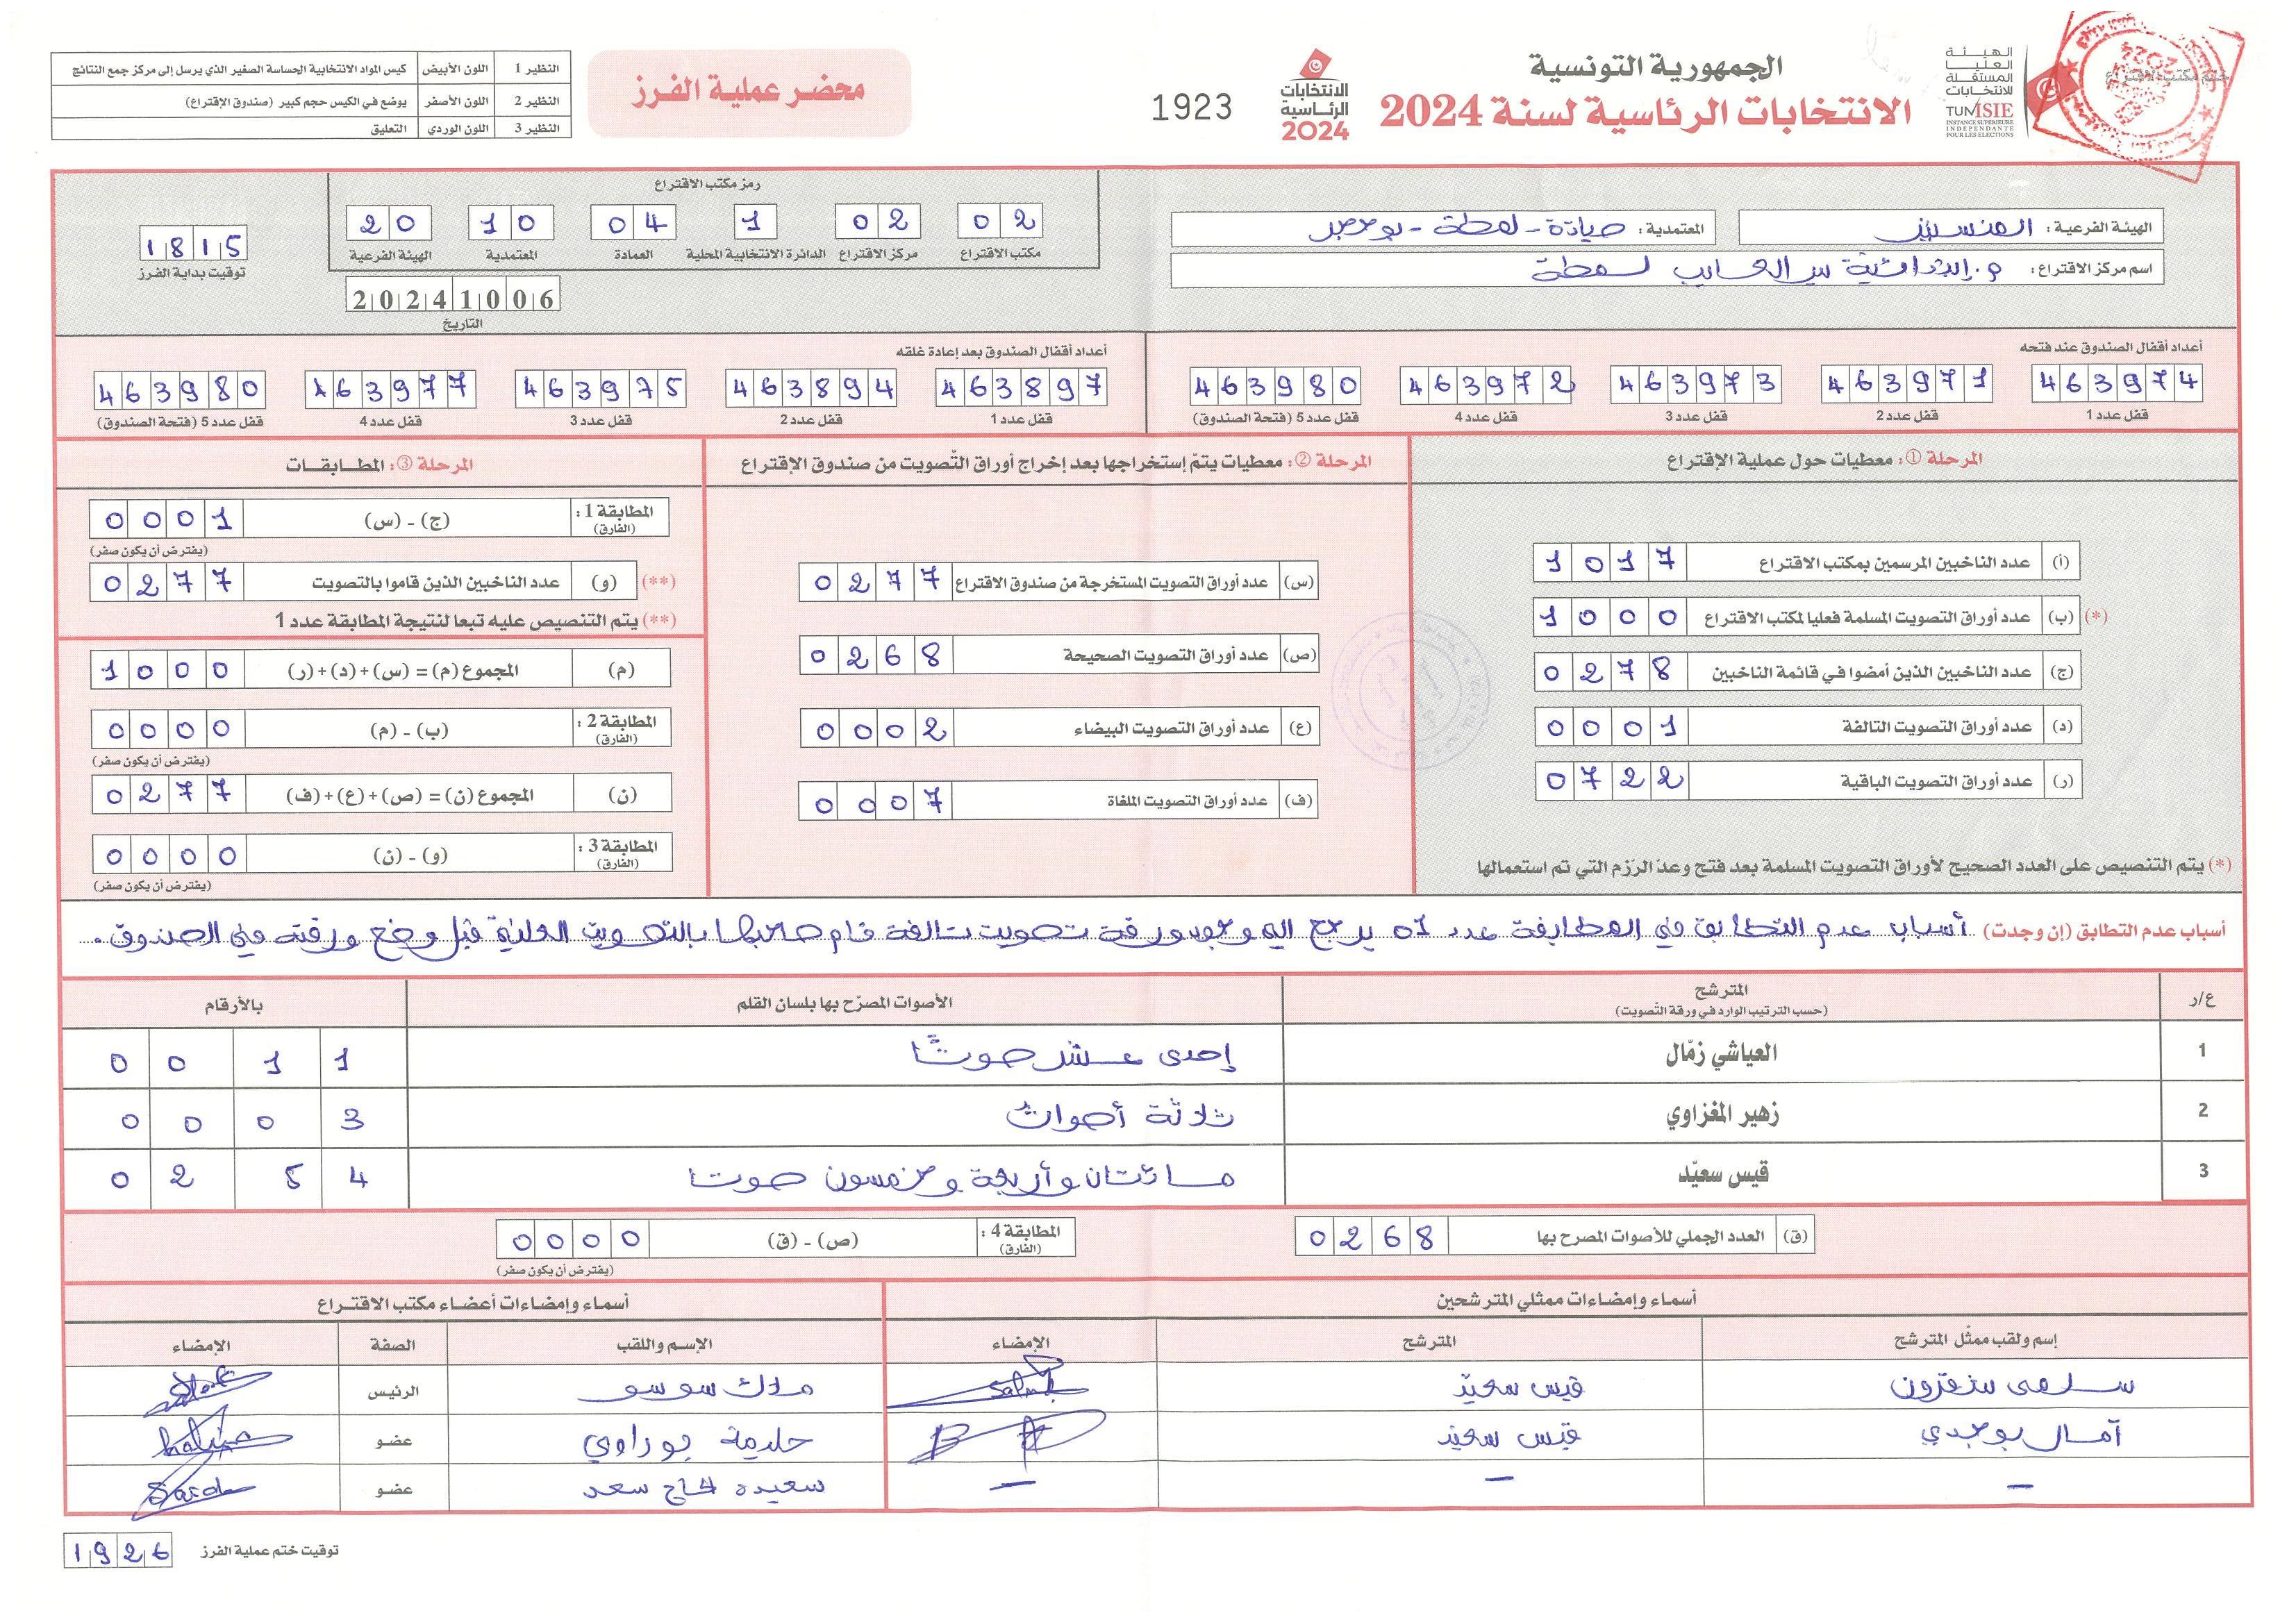 الهيئة
العليا
المستقلة
للانتخابات
TUNISIE
INSTANCE SUPERIEURE
INDEPENDANTE
POUR LES ELECTIONS
ختم مكتب الاقتراع
الجمهورية التونسية
الانتخابات الرئاسية لسنة 2024
الانتخابات
الرئاسية
2024
1923
محضر عملية الفرز
النظير 1 اللون الأبيض كيس المواد الانتخابية الحساسة الصغير الذي يرسل إلى مركز جمع النتائج
النظير 2 اللون الأصفر يوضع في الكيس حجم كبير (صندوق الإقتراع)
النظير 3 اللون الوردي التعليق
الهيئة الفرعية: المنستير
المعتمدية: صيادة - لمطة - بوحجر
اسم مركز الاقتراع: لمطة
رمز مكتب الاقتراع
02 مكتب الاقتراع
02 مركز الاقتراع
1 الدائرة الانتخابية المحلية
04 العمادة
10 المعتمدية
20 الهيئة الفرعية
1815
توقيت بداية الفرز
20241006
التاريخ
أعداد أقفال الصندوق عند فتحه
463974 قفل عدد 1
463971 قفل عدد 2
463973 قفل عدد 3
463972 قفل عدد 4
463980 قفل عدد 5 (فتحة الصندوق)
أعداد أقفال الصندوق بعد إعادة غلقه
463897 قفل عدد 1
463894 قفل عدد 2
463975 قفل عدد 3
463977 قفل عدد 4
463980 قفل عدد 5 (فتحة الصندوق)
المرحلة ①: معطيات حول عملية الإقتراع
(أ) عدد الناخبين المرسمين بمكتب الاقتراع 1017
(*) (ب) عدد أوراق التصويت المسلمة فعليا لمكتب الاقتراع 1000
(ج) عدد الناخبين الذين أمضوا في قائمة الناخبين 0278
(د) عدد أوراق التصويت التالفة 0001
(ر) عدد أوراق التصويت الباقية 0722
(*) يتم التنصيص على العدد الصحيح لأوراق التصويت المسلمة بعد فتح وعدّ الرّزم التي تم استعمالها
المرحلة ②: معطيات يتمّ إستخراجها بعد إخراج أوراق التّصويت من صندوق الإقتراع
(س) عدد أوراق التصويت المستخرجة من صندوق الاقتراع 0277
(ص) عدد أوراق التصويت الصحيحة 0268
(ع) عدد أوراق التصويت البيضاء 0002
(ف) عدد أوراق التصويت الملغاة 0007
المرحلة ③: المطابقات
المطابقة 1: (الفارق) (ج) - (س) 0001
(يفترض أن يكون صفر)
(**) (و) عدد الناخبين الذين قاموا بالتصويت 0277
(**) يتم التنصيص عليه تبعا لنتيجة المطابقة عدد 1
(م) المجموع (م) = (س)+(د)+(ر) 1000
المطابقة 2: (الفارق) (ب) - (م) 0000
(يفترض أن يكون صفر)
(ن) المجموع (ن) = (ص)+(ع)+(ف) 0277
المطابقة 3: (الفارق) (و) - (ن) 0000
(يفترض أن يكون صفر)
أسباب عدم التطابق (إن وجدت) أسباب عدم التطابق في المطابقة عدد 01 يرجع إلى وجود ورقة تصويت تالفة قام صاحبها بالتصويت قبل وضع ورقته في الصندوق.
ع/ر المترشح الأصوات المصرّح بها بلسان القلم بالأرقام
(حسب الترتيب الوارد في ورقة التّصويت)
1 العياشي زمّال إحدى عشر صوتًا 0011
2 زهير المغزاوي ثلاثة أصوات 0003
3 قيس سعيّد مائتان وأربعة وخمسون صوتا 0254
(ق) العدد الجملي للأصوات المصرح بها 0268
المطابقة 4: (الفارق) (ص) - (ق) 0000
(يفترض أن يكون صفر)
أسماء وإمضاءات ممثلي المترشحين
إسم ولقب ممثّل المترشح المترشح الإمضاء
قيس سعيّد
آمال بوجدي قيس سعيد
أسماء وإمضاءات أعضاء مكتب الاقتراع
الإسم واللقب الصفة الإمضاء
ملاك سوسو الرئيس
حليمة بوراوي عضو
سعيدة الحاج سعد عضو
توقيت ختم عملية الفرز 1926